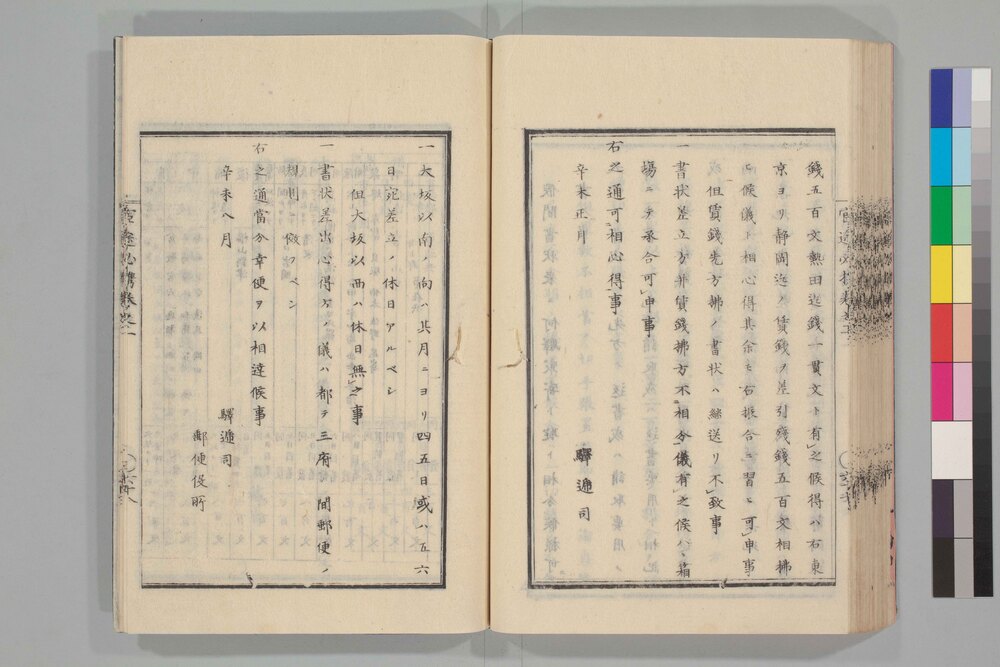 錢五百文熱田迄錢一貫文ト有之候得ハ右東
京ヨリ靜岡迄ノ賃錢ヲ差引殘錢五百文相拂
候儀ト相心得其余モ右振合ニ習ヒ可申事
但賃錢先方拂ノ書状ハ繼送リ不致事
一書状差立方并賃錢拂方不相分儀有之候ハヽ箱
場ニテ承合可申事
右之通可相心得事
辛未正月
驛逓司
一大坂以南ノ向ハ其月ニヨリ四五日或ハ五六
日宛差立ノ休日アルベシ
但大坂以西ハ休日無之事
一書状差出心得方ノ儀ハ都テ三府ノ間郵便ノ
規則ニ傚フベシ
右之通當分幸便ヲ以相達候事
辛未八月
驛逓司
郵便役所